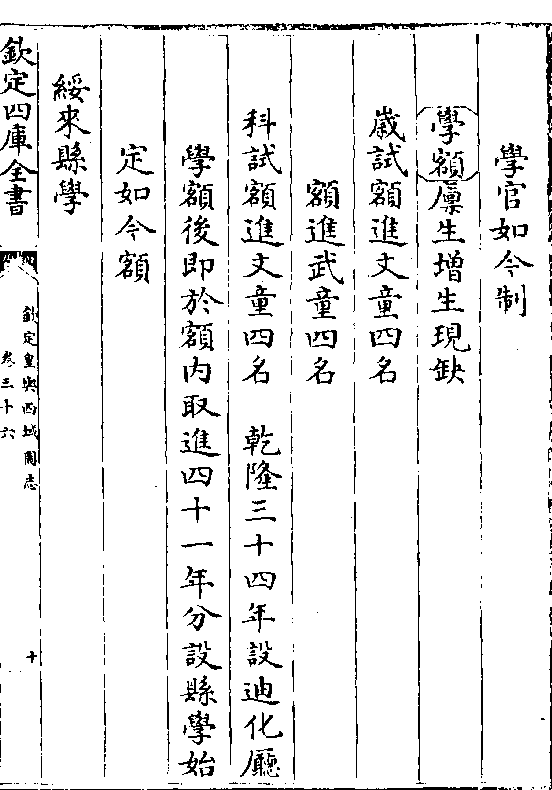 學官如今制
學額廪生增生現缺
歲試額進文童四名
額進武童四名
科試額進文童四名　乾隆三十四年設迪化廳
學額後即於額内取進四十一年分設縣學始
定如今額
綏來縣學
欽定四庫全書
欽定皇輿西域圖志
卷三十六
十